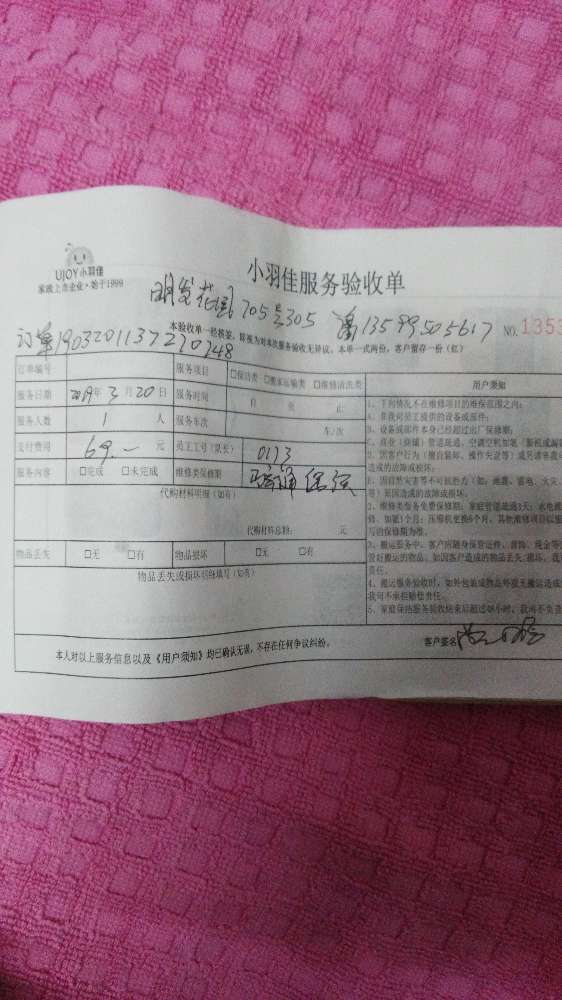 UJOY小羽佳
家政上市企业·始于1999
小羽佳服务验收单
明发花园705号305 13599505617
NO.1353
订单19032011372270248
本验收单一经核签,即视为对本次服务验收无异议。本单一式两份,客户留存一份(红)
订单编号 服务项目 □保洁类 □搬家运输类 □维修清洗类 用户须知
服务日期 2019年3月20日 服务时间 自 至 止
服务人数 1 人 服务车次 车/次
支付费用 69.— 元 员工工号(队长) 0173
服务内容 □完成 □未完成 维修类保修期
代购材料明细(如有)
代购材料总额: 元
物品丢失 □无 □有 物品损坏 □无 □有
物品丢失或损坏明细填写(如有)
1、下列情况不在维修项目的维保范围之内:
A、非我司员工提供的设备或部件;
B、设备或部件本身已经超过出厂保修期;
造成的故障或损坏;
等)而造成的故障或损坏。
2、维修类服务免费保修期:家庭管道疏通3天;水电维
写的保修期为准。
3、搬运服务中,客户应随身保管证件、首饰、现金等
责任。
4、搬运服务验收时,如外包装或物品外观无搬运造成
我司不承担赔偿责任。
5、家庭保洁服务验收结束后超过48小时,我司不负责
本人对以上服务信息以及《用户须知》均已确认无误,不存在任何争议纠纷。 客户签名